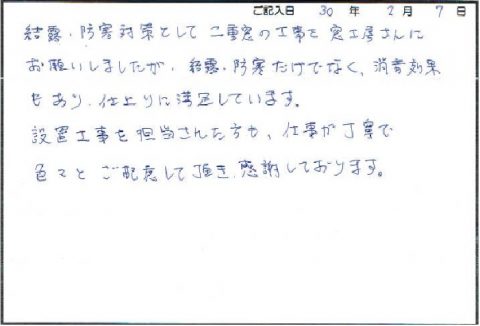 ご記入日 30 年 2 月 7 日
結露・防寒対策として 二重窓の工事を 窓工房さんに
お願いしましたが、結露・防寒だけでなく、消音効果
もあり、仕上りに満足しています。
設置工事を担当された方も、仕事が丁寧で
色々とご配慮して頂き、感謝しております。